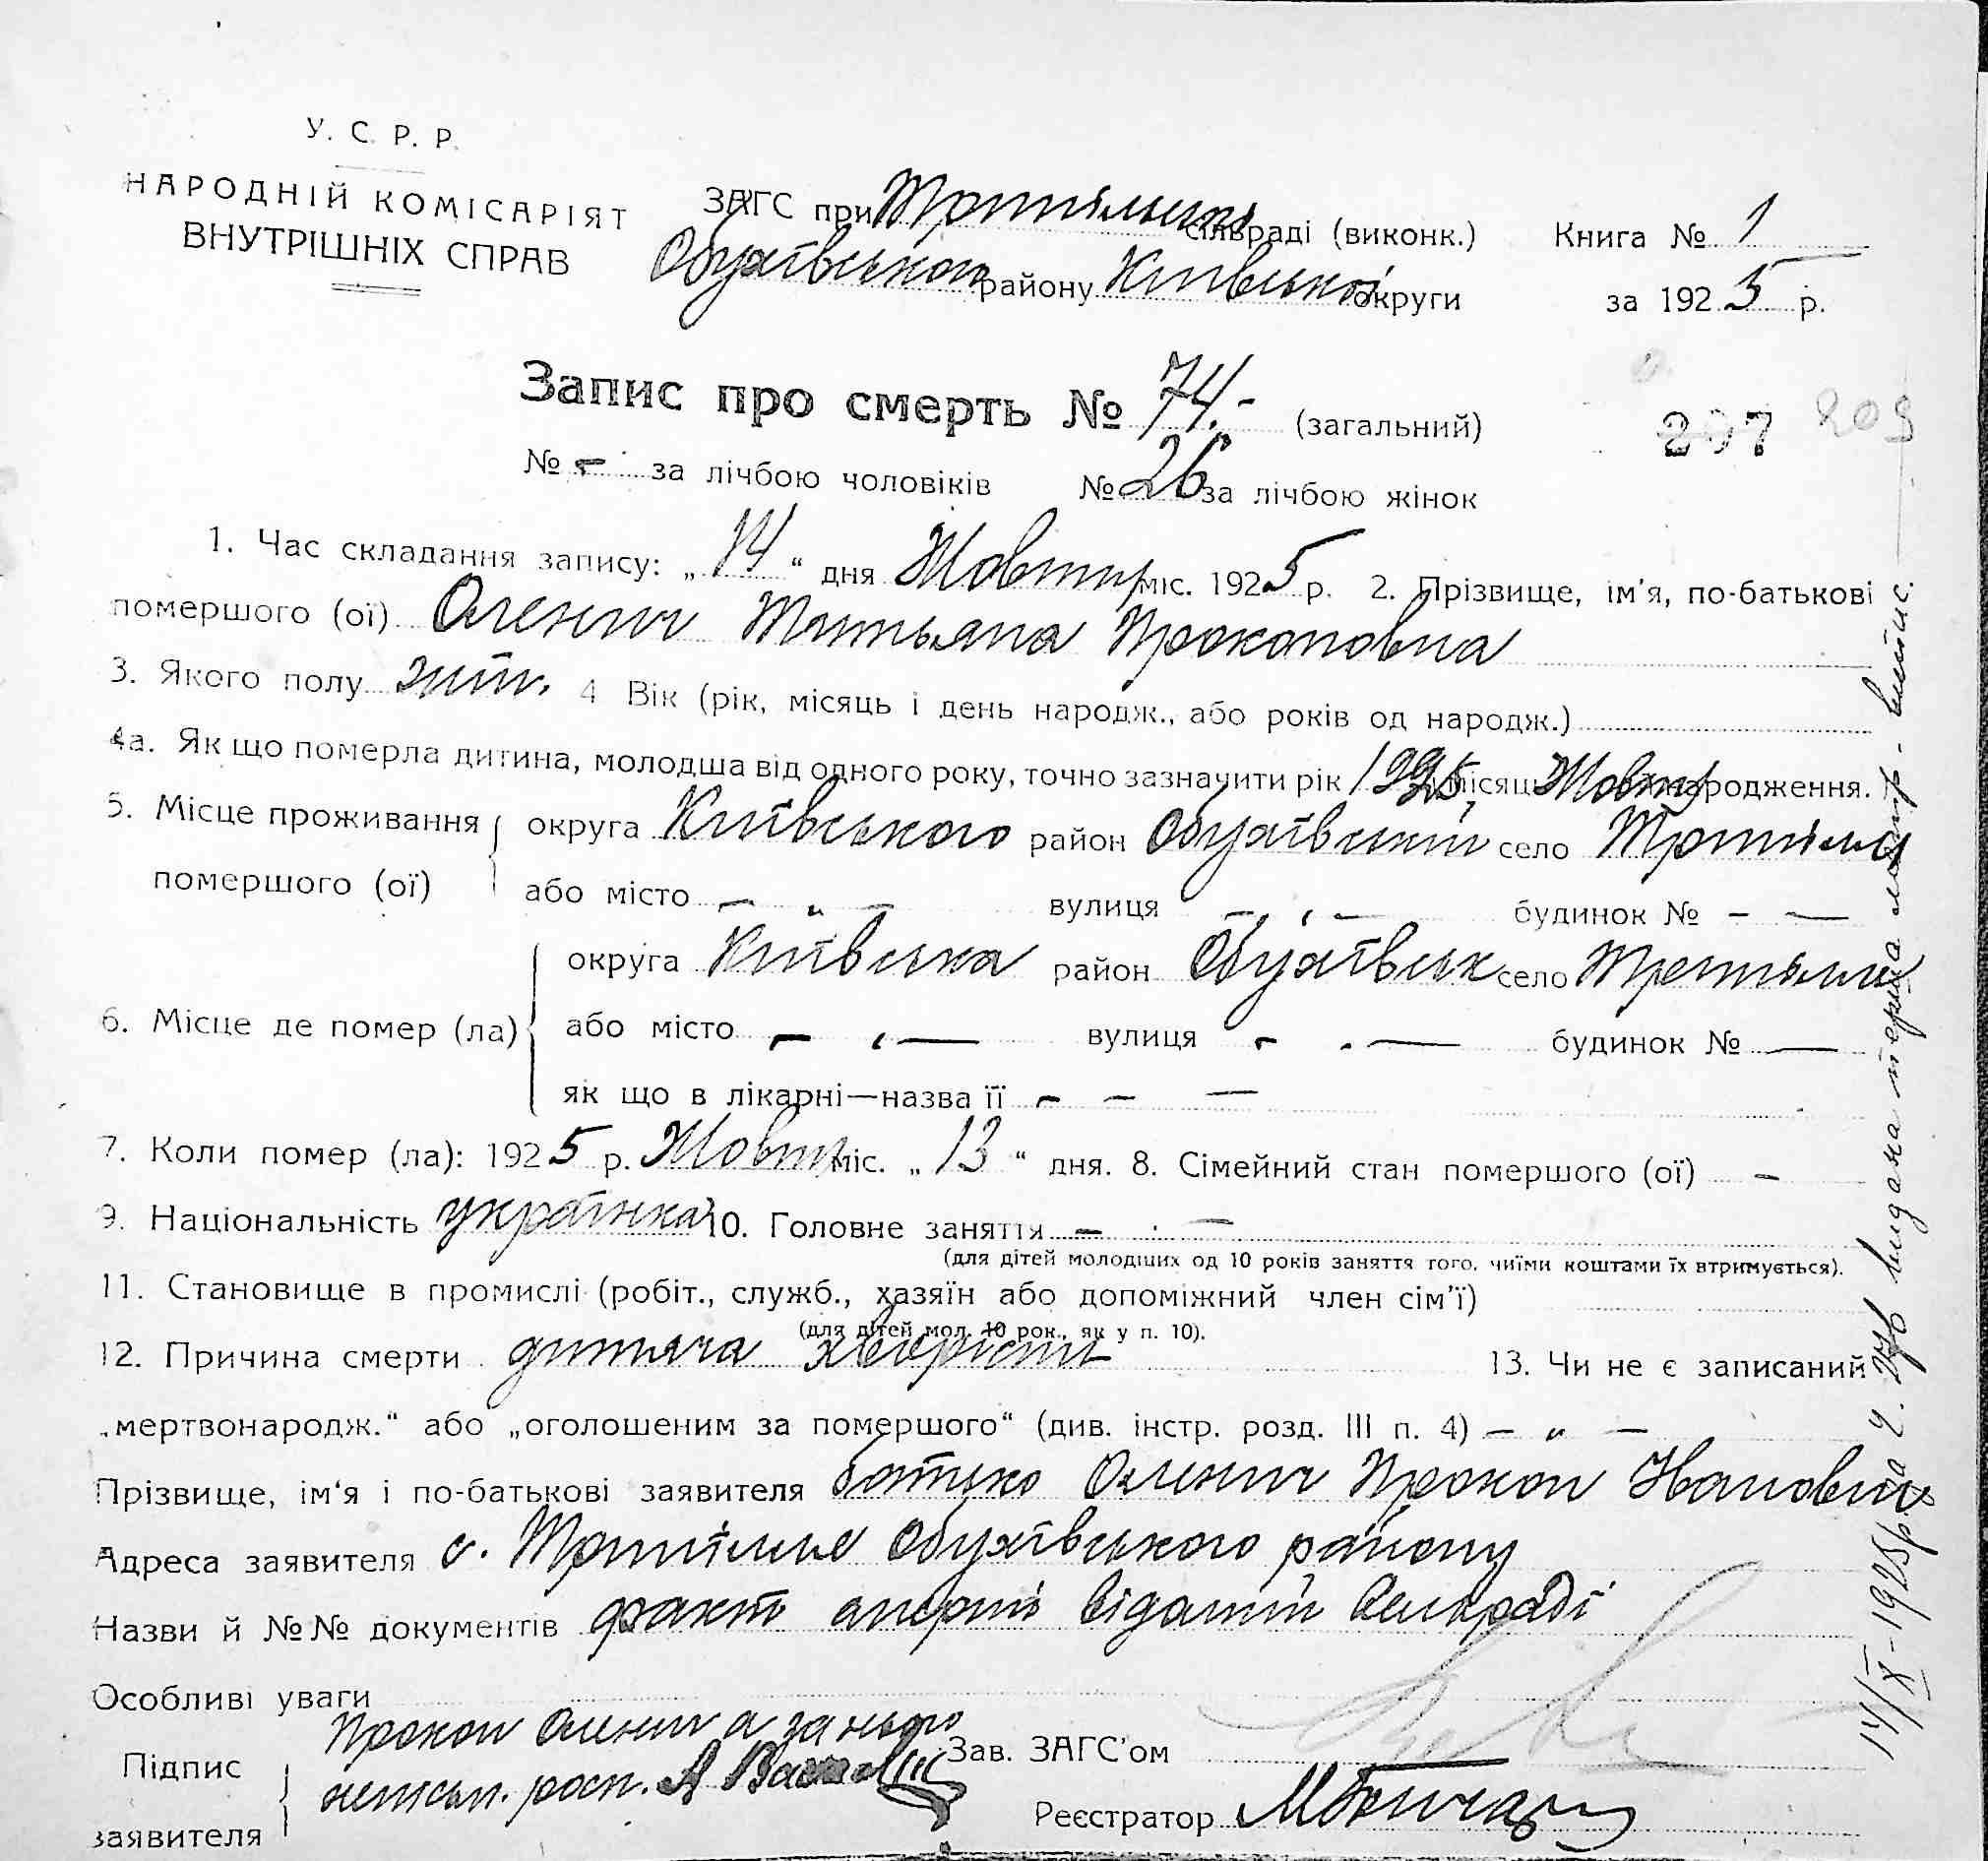 У. С. Р. Р.
НАРОДНІЙ КОМІСАРІЯТ
ВНУТРІШНІХ СПРАВ
ЗАГС при Трипільські сільраді (виконк.) Книга № 1
Обухівського району Київської округи за 1925 р.
Запис про смерть № 74.- (загальний)
297 209
№ - за лічбою чоловіків № 26 за лічбою жінок
1. Час складання запису: „14“ дня Жовтня міс. 1925 р. 2. Прізвище, ім'я, по-батькові
помершого (ої) Оленич Татьяна Прокоповна
3. Якого полу жін. 4 Вік (рік, місяць і день народж., або років од народж.)
4а. Як що померла дитина, молодша від одного року, точно зазначити рік 1925, місяць Жовтня народження.
5. Місце проживання помершого (ої) округа Київського район Обухівський село Трипілля
або місто - „ - вулиця - , - будинок № - -
6. Місце де помер (ла) округа Київська район Обухівськ село Трепілля
або місто - , - вулиця - . - будинок № -
як що в лікарні—назва її - - -
7. Коли помер (ла): 1925 р. Жовтня міс. „13“ дня. 8. Сімейний стан помершого (ої) -
9. Національність українка 10. Головне заняття - . -
(для дітей молодших од 10 років заняття того, чиїми коштами їх втримується).
11. Становище в промислі (робіт., служб., хазяїн або допоміжний член сім'ї)
(для дітей мол. 10 рок., як у п. 10).
12. Причина смерти дитяча хворість 13. Чи не є записаний
„мертвонародж.“ або „оголошеним за помершого“ (див. інстр. розд. III п. 4) - „ -
Прізвище, ім'я і по-батькові заявителя батько Оленич Прокоп Иванович
Адреса заявителя с. Трипілье Обухівського району
Назви й №№ документів факт смерті відомий сельраді
Особливі уваги
Підпис заявителя Прокоп Оленич а за нього
неписьм. росп. А
Зав. ЗАГС'ом
Реєстратор
14/X-1925р. за Ч. видана перша